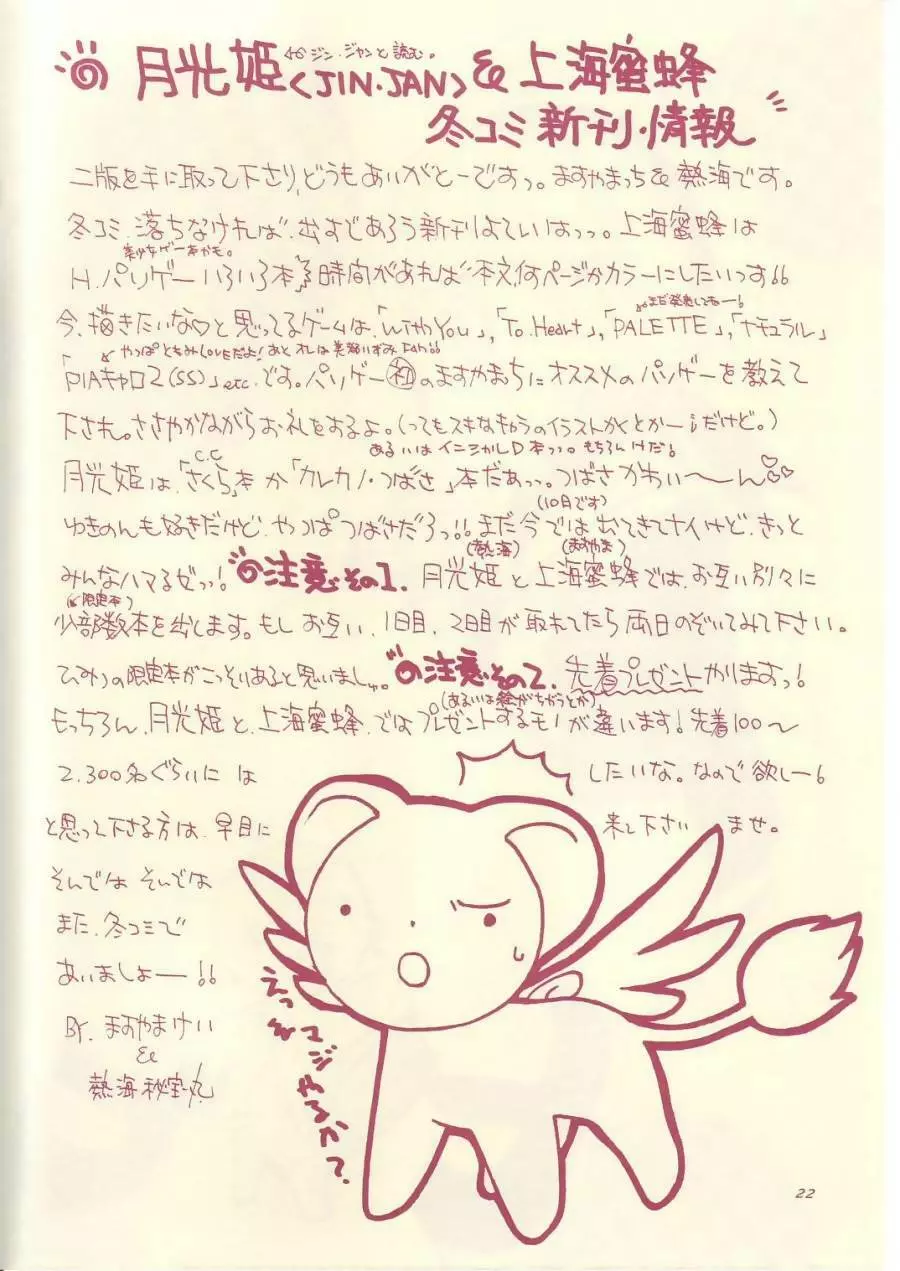 月光姫<JIN・JAN>& 上海蜜蜂
←ジン・ジャンと読む。
冬コミ 新刊・情報
二版を手に取って下さり、どうもありがとーですっ。ますやまっち&熱海です。
冬コミ、落ちなければ、出すであろう新刊よていはっっ。上海蜜蜂は
美少女ゲー本かも。
H.パソゲーいろいろ本 時間があれば本文何ページかカラーにしたいっす!!
まだ発売してねー!
今、描きたいな♡と思ってるゲームは、「With You」,「To Heart」,「PALETTE」,「ナチュラル」
やっぱともみLOVEだよ!あと オレは美樹いずみ FAN!!
「PIAキャロ2(SS)」etc.です。パソゲー㊙のますやまっちにオススメのパソゲーを教えて
下され。ささやかながらお礼をするよ。(ってもスキなキャラのイラストかくとかーだけど。)
あるいは イニシャルD 本っっ。もちろんけだ!
C.C
月光姫は、「さくら」本か「カレカノ・つばさ」本だぁっっ。つばさかわいい〜ん♡♡
(10日です)
ゆきのんも好きだけど、やっぱつばさだろっ!!まだ今では出てきてナイけど、きっと
(熱海) (ますやま)
みんなハマるぜっ!注意その1. 月光姫と上海蜜蜂では、お互い別々に
(限定本)
少部数本を出します。もしお互い、1日目、2日目が取れてたら両日のぞいてみて下さい。
ひみつの限定本がこっそりあると思いましゅ。注意その2. 先着プレゼントがありますっ!
(あるいは絵がちがうとか)
もっちろん、月光姫と、上海蜜蜂、ではプレゼントするモノが違います!先着100〜
2.300名ぐらいには したいな。なので欲しー!
と思って下さる方は、早目に 来て下さい ませ。
そんでは そんでは
また、冬コミで
あいましょー!!
By. ますやまけい
&
熱海秘宝丸
えっ マジやるか?
22